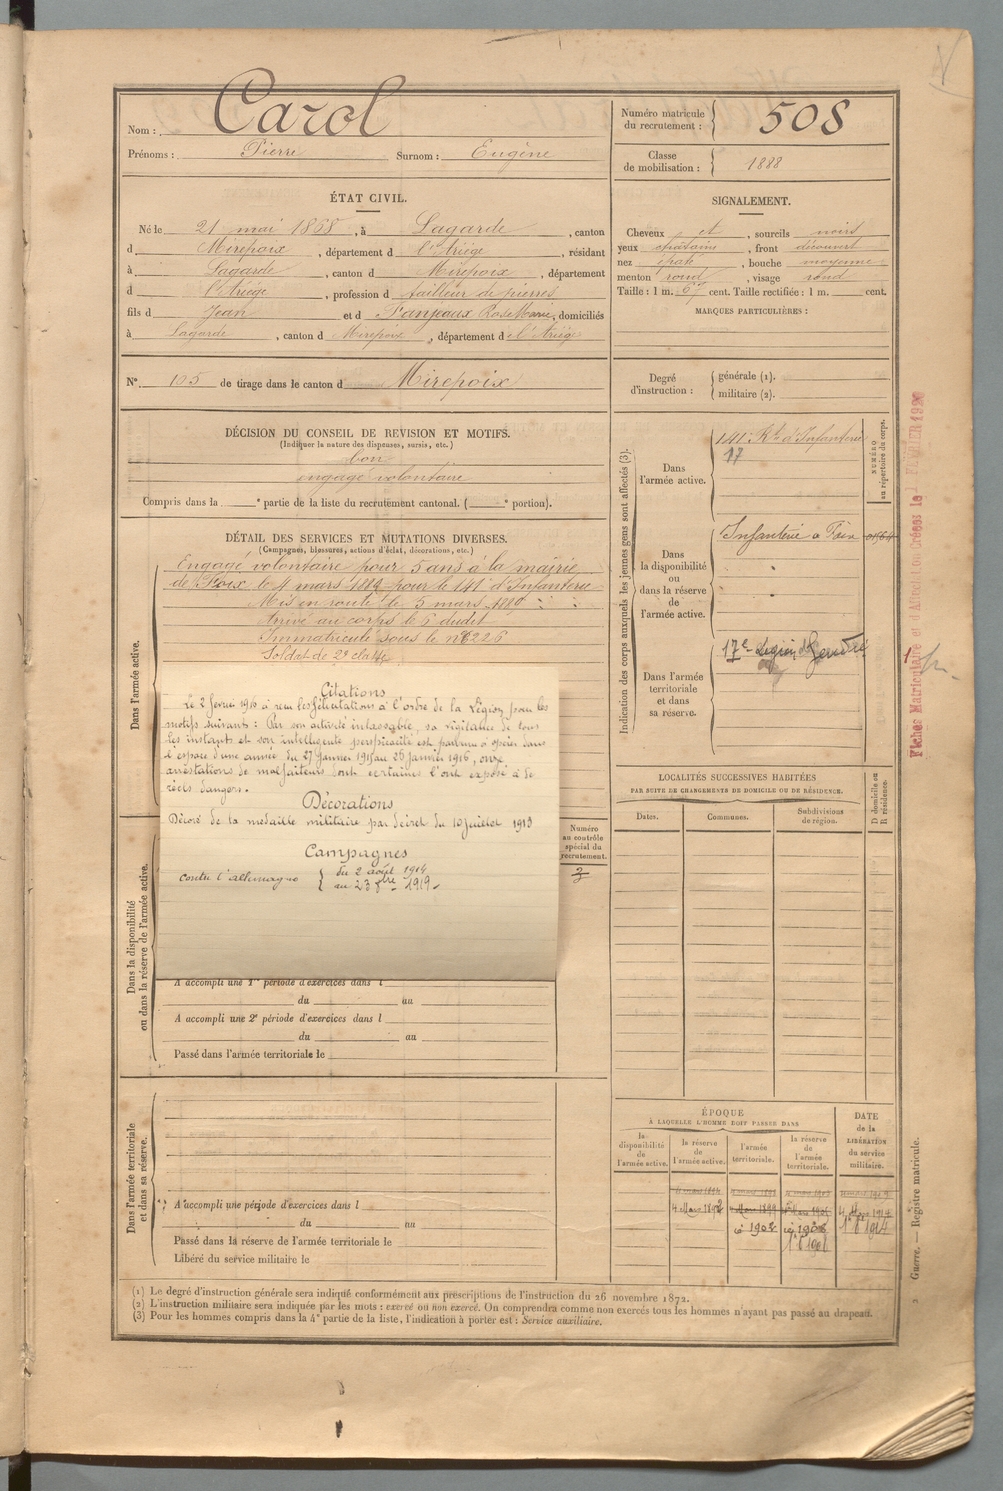 Nom : Carol
Prénoms : Pierre Surnom : Eugène
Numéro matricule
du recrutement : 508
Classe
de mobilisation : 1888
ÉTAT CIVIL.
Né le 21 mai 1868, à Lagarde, canton
d Mirepoix, département d l'Ariège, résidant
à Lagarde, canton d Mirepoix, département
d l'Ariège, profession d tailleur de pierres
fils d Jean et d Fanjeaux Rose Marie, domiciliés
à Lagarde, canton d Mirepoix, département d e l'Ariège
SIGNALEMENT.
Cheveux et, sourcils noirs
yeux chatains, front découvert
nez épaté, bouche moyenne
menton rond, visage rond
Taille : 1 m. 67 cent. Taille rectifiée : 1 m. cent.
MARQUES PARTICULIÈRES :
N° 105 de tirage dans le canton d Mirepoix
Degré
d'instruction :
générale (1).
militaire (2).
DÉCISION DU CONSEIL DE REVISION ET MOTIFS.
(Indiquer la nature des dispenses, sursis, etc.)
bon
engagé volontaire
Compris dans la e partie de la liste du recrutement cantonal. ( e portion).
DÉTAIL DES SERVICES ET MUTATIONS DIVERSES.
(Campagnes, blessures, actions d'éclat, décorations, etc.)
Dans l'armée active.
Engagé volontaire pour 5 ans à la mairie
de Foix le 4 mars 1889 pour le 141e d'Infanterie
Mis en route le 5 mars 1889
Arrivé au corps le 6 dudit
Immatriculé sous le n° 6226
Soldat de 2e classe
Citations
Le 2 février 1916 a reçu les félicitations à l'ordre de la Légion pour les
motifs suivant : Par son activité inlassable, sa vigilance de tous
les instants et son intelligente perspicacité est parvenu à opérer dans
l'espace d'une année du 27 Janvier 1915 au 26 Janvier 1916, onze
arrestations de malfaiteurs dont certaines l'ont exposé à de
réels dangers.
Décorations
Décoré de la médaille militaire par décret du 10 Juillet 1913
Campagnes
contre l'allemagne du 2 août 1914
au 23 8bre 1919
Numéro
au contrôle
spécial du
recrutement.
Dans la disponibilité
ou dans la réserve de l'armée active.
A accompli une 1re période d'exercices dans l
du au
A accompli une 2e période d'exercices dans l
du au
Passé dans l'armée territoriale le
Dans l'armée territoriale
et dans sa réserve.
A accompli une période d'exercices dans l
du au
Passé dans la réserve de l'armée territoriale le
Libéré du service militaire le
Indication des corps auxquels les jeunes gens sont affectés (3).
Dans
l'armée active.
141e Rt d'Infanterie
17
NUMÉRO
au répertoire du corps.
Dans
la disponibilité
ou
dans la réserve
de
l'armée active.
Infanterie à Foix
Dans l'armée
territoriale
et dans
sa réserve.
17e Légion de Gendrie
LOCALITÉS SUCCESSIVES HABITÉES
PAR SUITE DE CHANGEMENTS DE DOMICILE OU DE RÉSIDENCE.
Dates.
Communes.
Subdivisions
de région.
D domicile ou
R résidence.
ÉPOQUE
À LAQUELLE L'HOMME DOIT PASSER DANS
la
disponibilité
de
l'armée active.
la réserve
de
l'armée active.
l'armée
territoriale.
la réserve
de
l'armée
territoriale.
DATE
de la
LIBÉRATION
du service
militaire.
4 Mars 1892
4 Mars 1914
1902
1908
1914
Fiches Matriculaire et d'Affectation Créées le FÉVRIER 1926
Guerre. — Registre matricule.
(1) Le degré d'instruction générale sera indiqué conformément aux prescriptions de l'instruction du 26 novembre 1872.
(2) L'instruction militaire sera indiquée par les mots : exercé ou non exercé. On comprendra comme non exercés tous les hommes n'ayant pas passé au drapeau.
(3) Pour les hommes compris dans la 4e partie de la liste, l'indication à porter est : Service auxiliaire.